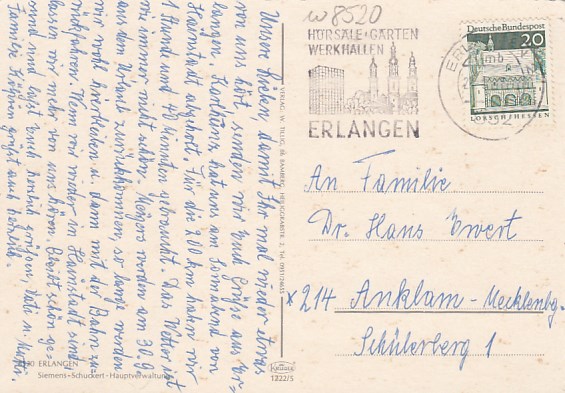 w 8520
HÖRSÄLE · GÄRTEN
WERKHALLEN
ERLANGEN
Deutsche Bundespost
20
LORSCH/HESSEN
An Familie
Dr. Hans Ewert
x 214 Anklam - Mecklenbg.
Schülerberg 1
Unsere Lieben, damit Ihr mal wieder etwas
von uns hört, senden wir Euch Grüße aus Er-
langen. Karlheinz hat uns am Sonnabend von
Hainstadt abgeholt. Für die 200 km haben wir
1 Stunde und 40 Minuten gebraucht. Das Wetter ist
wie immer nicht schön. Meyers werden am 30.9.
aus dem Urlaub zurückkommen, so lange werden
wir wohl hierbleiben u. dann mit der Bahn zu-
rückfahren. Wenn wir wieder in Hainstadt sind,
lassen wir mehr von uns hören. Bleibt schön ge-
sund und seid Euch herzlich gegrüßt, Vati u. Mutti.
Familie grüßt auch herzlich.
VERLAG W. TILLIG, 86 BAMBERG
ERLANGEN
Siemens-Schuckert - Hauptverwaltung
KRÜGER
1222/5